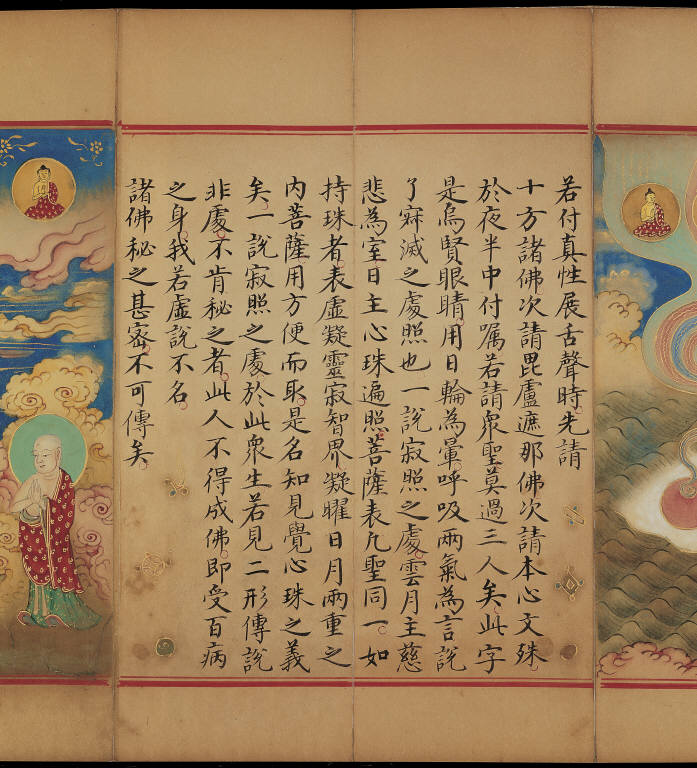 若付真性展舌聲時先請
十方諸佛次請毘盧遮那佛次請本心文殊
於夜半中付嘱若請衆聖莫過三人矣此字
是烏賢眼睛用日輪為暈呼吸兩氣為言說
了寂滅之處照也一說寂照之處雲月主慈
悲為室日主心珠遍照菩薩表凡聖同一如
持珠者表虛凝靈寂智界凝曜日月兩重之
内菩薩用方便而取是名知見覺心珠之義
矣一說寂照之處於此衆生若見二形傳說
非處不肯秘之者此人不得成佛即受百病
之身我若虛說不名
諸佛秘之甚密不可傳矣